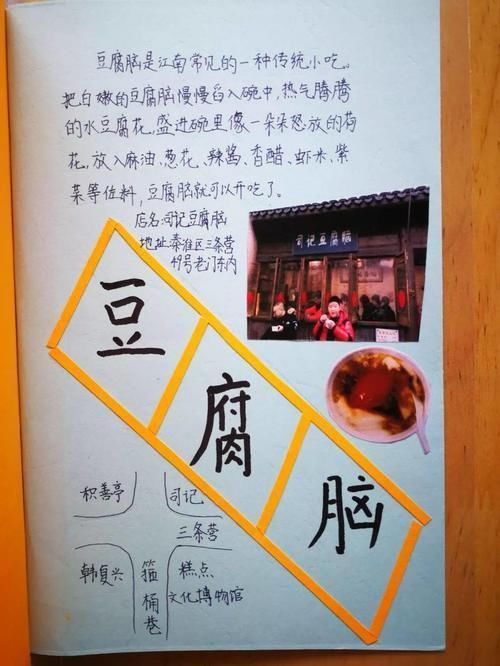 豆腐脑是江南常见的一种传统小吃。
把白嫩的豆腐脑慢慢舀入碗中,热气腾腾
的水豆腐花,盛进碗里像一朵朵怒放的荷
花,放入麻油、葱花、辣酱、香醋、虾米、紫
菜等佐料,豆腐脑就可以开吃了。
店名:司记豆腐脑
地址:秦淮区三条营
49号老门东内
司记豆腐脑
豆
腐
脑
积善亭
司记
三条营
韩复兴
箍桶巷
糕点
文化博物馆